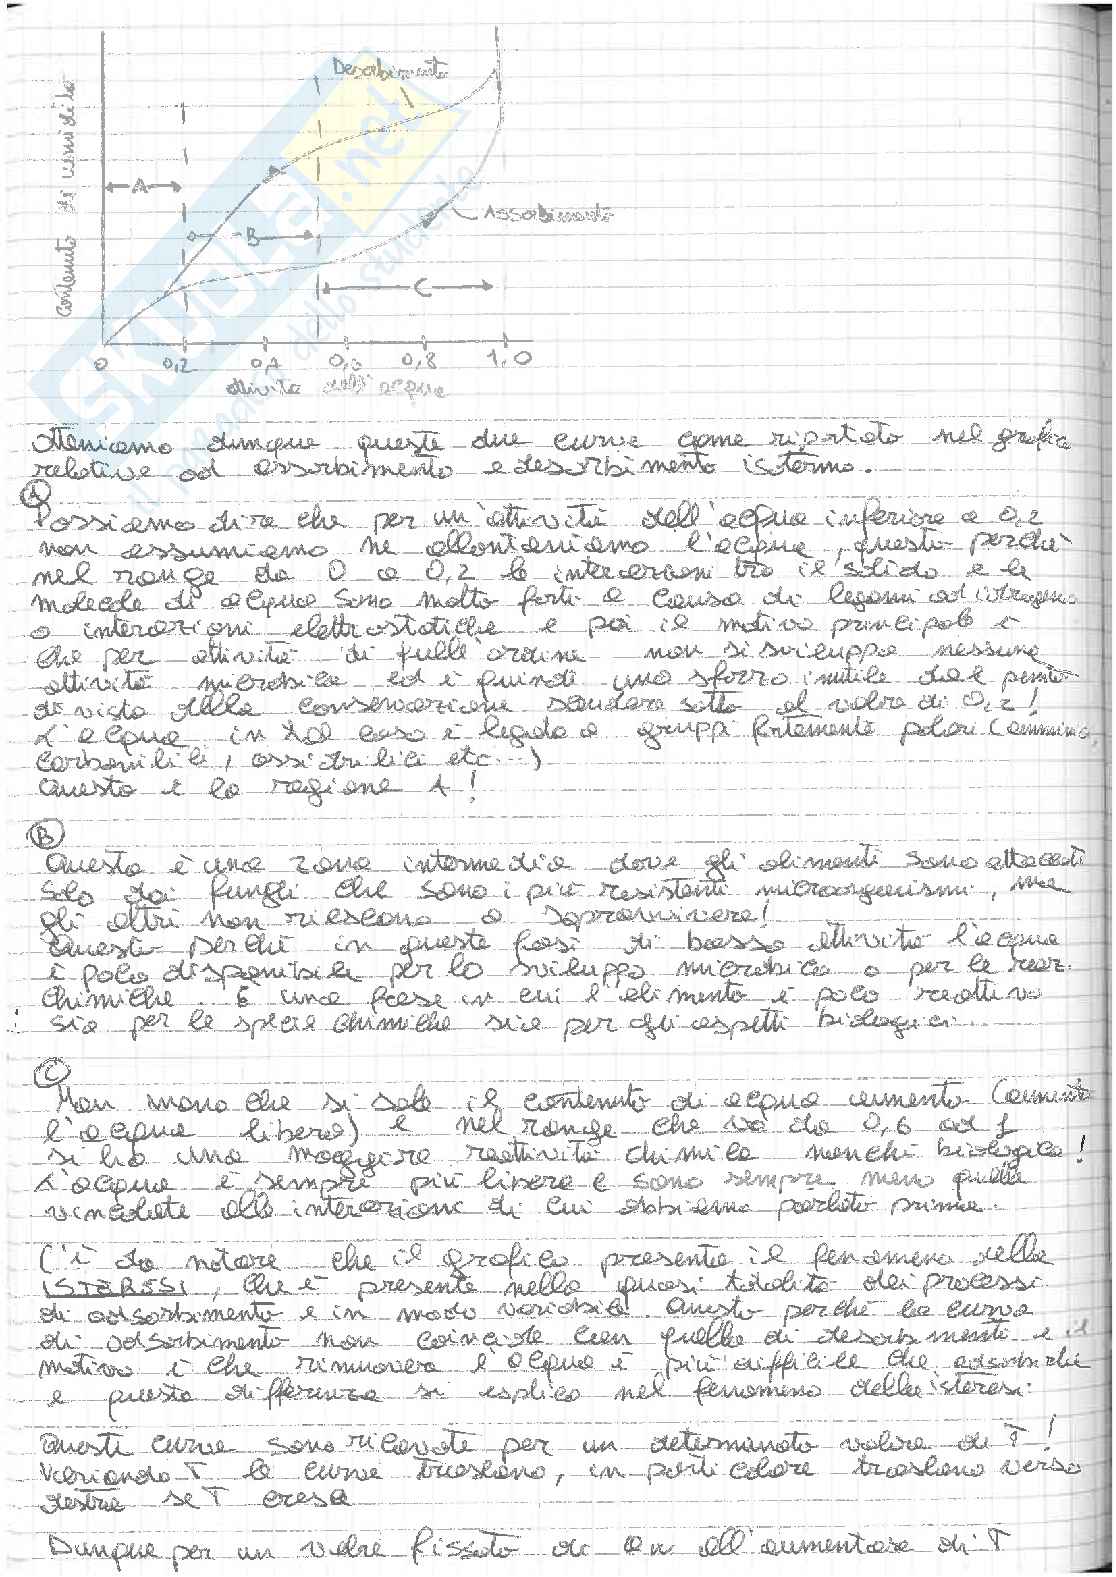 Contenuto di umidità
Desorbimento
A
Assorbimento
B
C
0 0,2 0,4 0,6 0,8 1,0
attività dell'acqua
Skuola.net
il paradiso dello studente
Otteniamo dunque queste due curve come riportato nel grafico
relative ad assorbimento e desorbimento isotermo.
A
Possiamo dire che per un'attività dell'acqua inferiore a 0,2
non assumiamo ne allontaniamo l'acqua, questo perchè
nel range da 0 a 0,2 le interazioni tra il solido e le
molecole di acqua sono molto forti a causa di legami ad idrogeno
o interazioni elettrostatiche e poi il motivo principale è
che per attività di quell'ordine non si sviluppa nessuna
attività microbica ed è quindi uno sforzo inutile dal punto
di vista della conservazione scendere sotto al valore di 0,2!
L'acqua in tal caso è legata a gruppi fortemente polari (amminici,
carbonilici, ossidrilici etc...)
Questa è la regione A!
B
Questa è una zona intermedia dove gli alimenti sono attaccati
solo dai funghi che sono i più resistenti microorganismi, ma
gli altri non riescono a sopravvivere!
Questo perchè in queste fasi di bassa attività l'acqua
è poco disponibile per lo sviluppo microbico o per le reaz.
chimiche. È una fase in cui l'alimento è poco reattivo
sia per le specie chimiche sia per gli aspetti biologici...
C
Man mano che si sale il contenuto di acqua aumenta (aumenta
l'acqua libera) e nel range che va da 0,6 ad 1
si ha una maggiore reattività chimica nonchè biologica!
L'acqua è sempre più libera e sono sempre meno quelle
vincolate alle interazioni di cui abbiamo parlato prima.
C'è da notare che il grafico presenta il fenomeno della
ISTERESI, che è presente nella quasi totalità dei processi
di adsorbimento e in modo variabile. Questo perchè la curva
di adsorbimento non coincide con quella di desorbimento e il
motivo è che rimuovere l'acqua è più difficile che adsorbirla
e questa differenza si esplica nel fenomeno della isteresi.
Queste curve sono ricavate per un determinato valore di T!
Variando T le curve traslano, in particolare traslano verso
destra se T cresce
Dunque per un valore fissato di aw all'aumentare di T